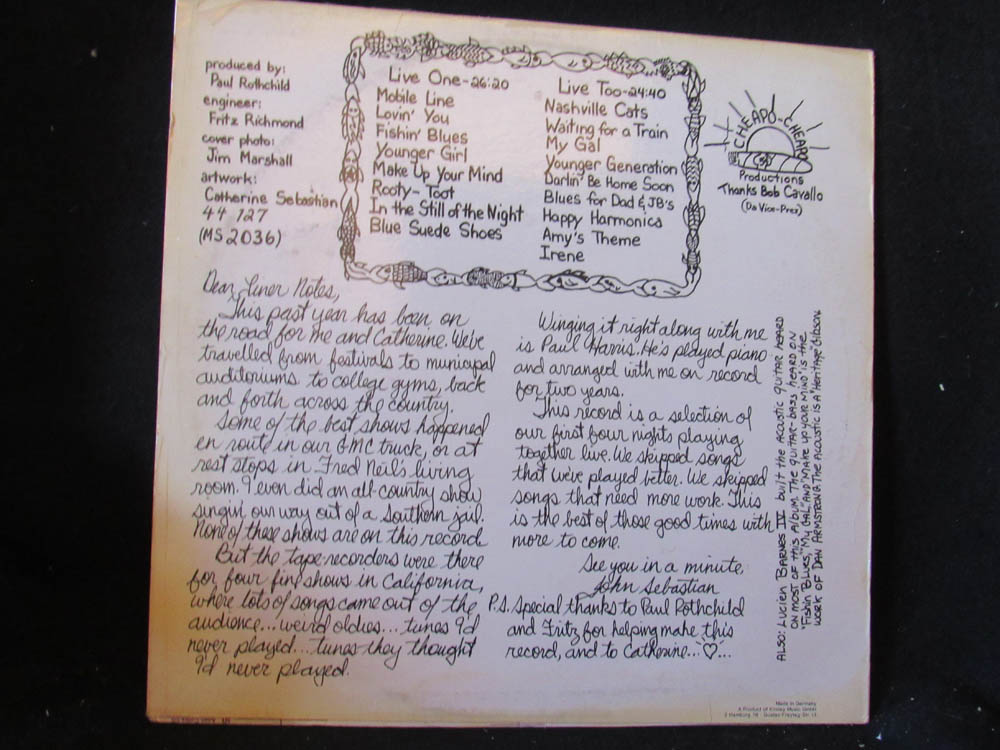 produced by:
Paul Rothchild
engineer:
Fritz Richmond
cover photo:
Jim Marshall
artwork:
Catherine Sebastian
44 127
(MS 2036)
Live One-26:20
Mobile Line
Lovin' You
Fishin' Blues
Younger Girl
Make Up Your Mind
Rooty-Toot
In the Still of the Night
Blue Suede Shoes
Live Too-24:40
Nashville Cats
Waiting for a Train
My Gal
Younger Generation
Darlin' Be Home Soon
Blues for Dad & JB's
Happy Harmonica
Amy's Theme
Irene
CHEAPO-CHEAPO
Productions
Thanks Bob Cavallo
(Da Vice-Prez)
Dear Liner Notes,
This past year has been on
the road for me and Catherine. We've
travelled from festivals to municipal
auditoriums to college gyms, back
and forth across the country.
Some of the best shows happened
en route in our GMC truck, or at
rest stops in Fred Neil's living
room. I even did an all-country show
singin' our way out of a Southern jail.
None of these shows are on this record.
But the tape-recorders were there
for four fine shows in California,
where lots of songs came out of the
audience... weird oldies... tunes I'd
never played... tunes they thought
I'd never played.
Winging it right along with me
is Paul Harris. He's played piano
and arranged with me on record
for two years.
This record is a selection of
our first four nights playing
together live. We skipped songs
that we've played better. We skipped
songs that need more work. This
is the best of those good times with
more to come.
See you in a minute,
John Sebastian
P.S. Special thanks to Paul Rothchild
and Fritz for helping make this
record, and to Catherine...♡...
ALSO: LUCIEN BARNES IV built the ACOUSTIC GUITAR HEARD
ON MOST OF THIS ALBUM. THE GUITAR-BASS HEARD ON
"FISHIN BLUES," "MY GAL," AND "MAKE UP YOUR MIND" IS THE
WORK OF DAN ARMSTRONG. THE ACOUSTIC IS A "HERITAGE" GIBSON.
Made in Germany
A Product of Kinney Music GmbH
2 Hamburg 76 · Gustav-Freytag-Str. 13